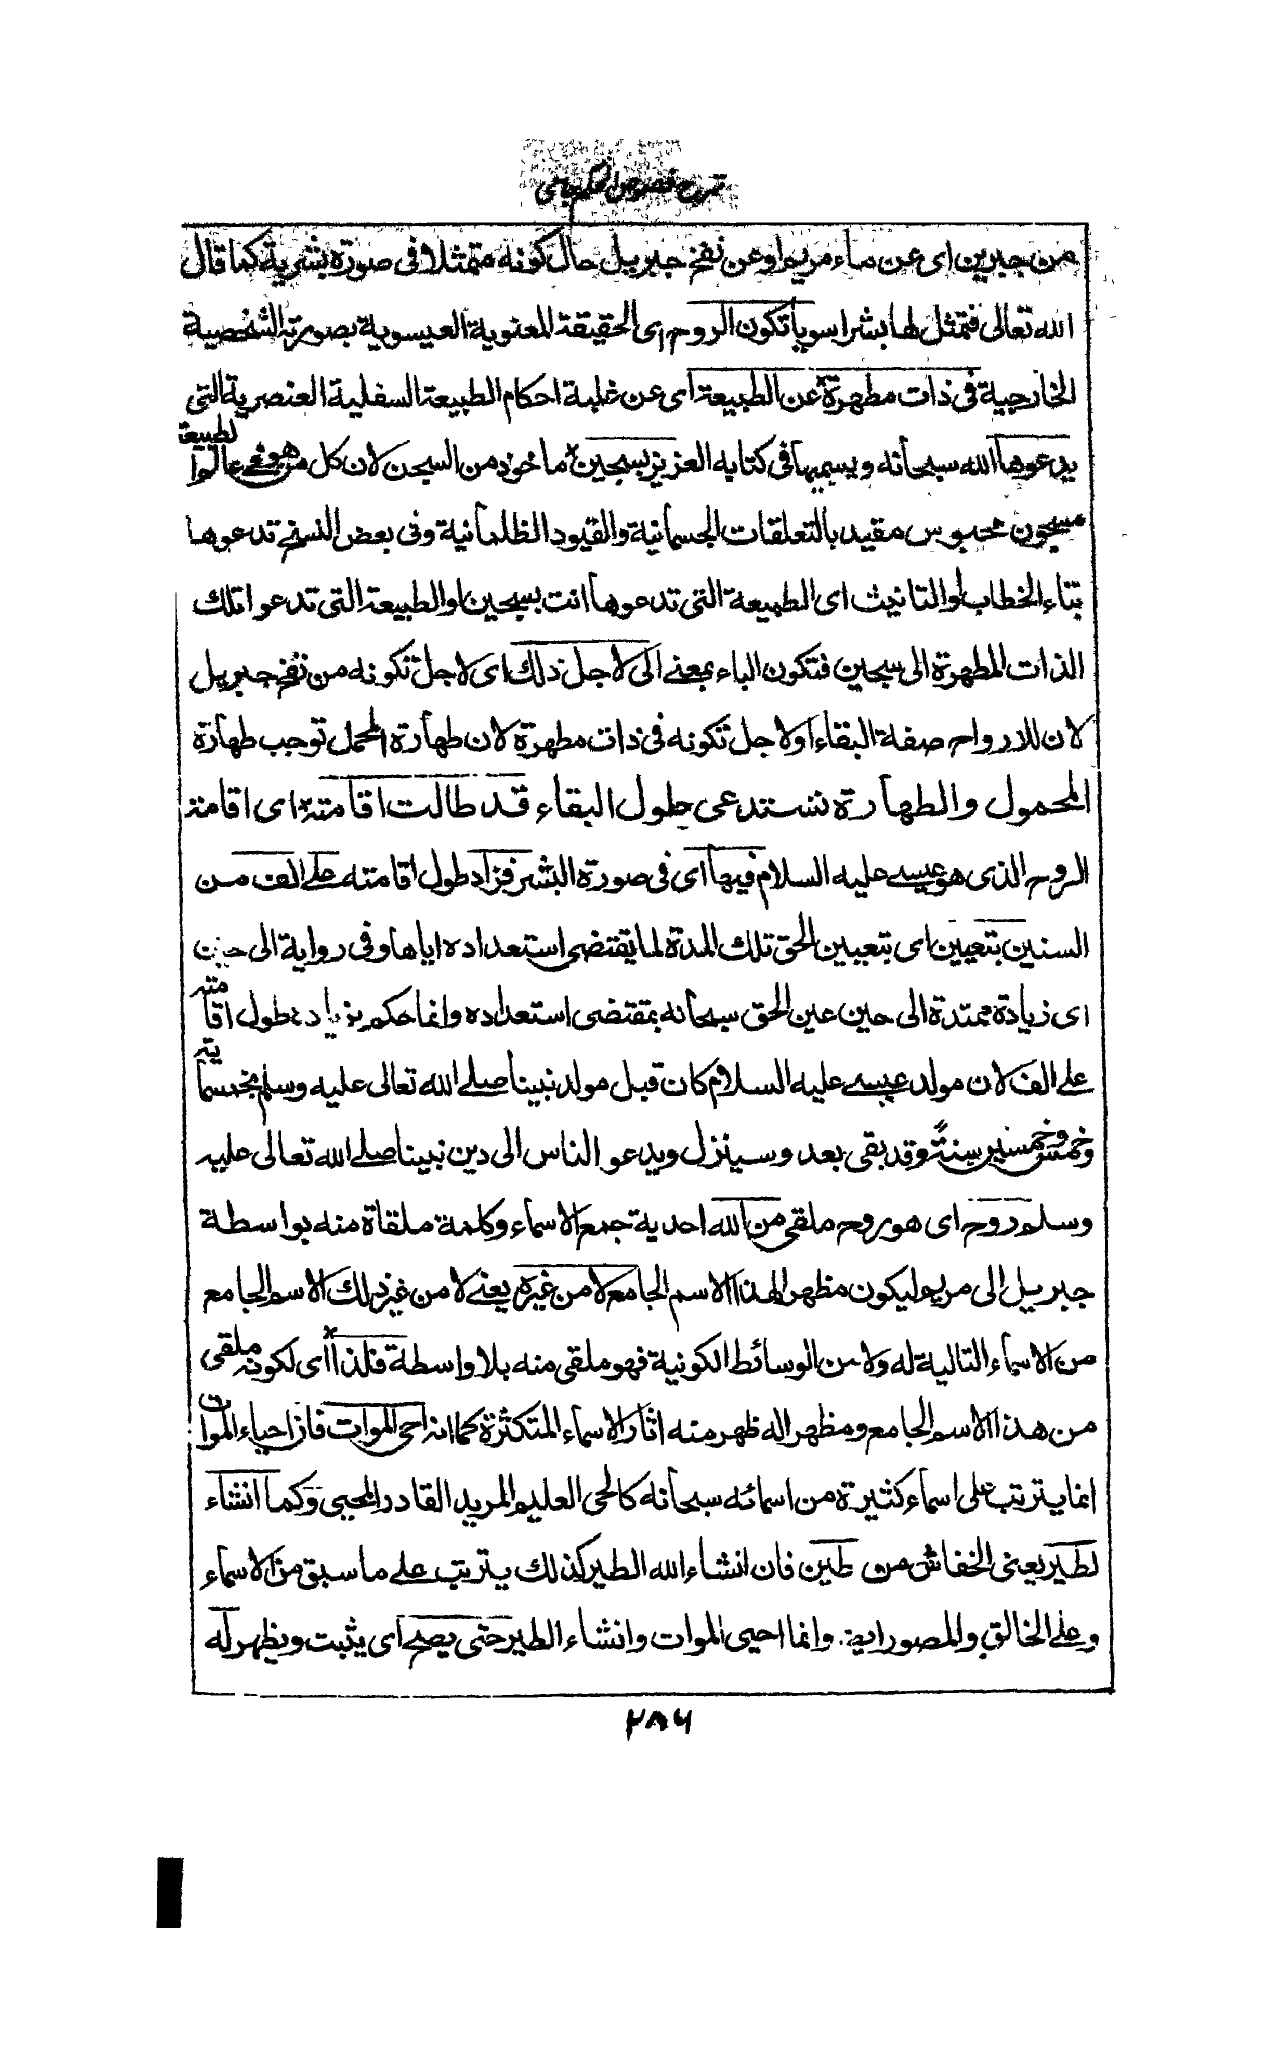 شرح فصوص الحكم جامی
من جبرين اى عن ماء مريم او عن نفخ جبريل حال كونه متمثلا فى صورة بشرية كما قال
الله تعالى فتمثل لها بشرا سويا تكون الروح اى الحقيقة المعنوية العيسوية بصورته الشخصية
الخارجية فى ذات مطهرة عن الطبيعة اى عن غلبة احكام الطبيعة السفلية العنصرية التى
يدعوها الله سبحانه ويسميها فى كتابه العزيز بسجين ماخوذ من السجن لان كل من هو فى عالم الطبيعة
مسجون محبوس مقيد بالتعلقات الجسمانية والقيود الظلمانية وفى بعض النسخ تدعوها
بتاء الخطاب او التانيث اى الطبيعة التى تدعوها انت بسجين او الطبيعة التى تدعو تلك
الذات المطهرة الى سجين فتكون الباء بمعنى الى لاجل ذلك اى لاجل تكونه من نفخ جبريل
لان للارواح صفة البقاء او لاجل تكونه فى ذات مطهرة لان طهارة المحمل توجب طهارة
المحمول والطهارة تستدعى طول البقاء قد طالت اقامته اى اقامة
الروح الذى هو عيسى عليه السلام فيها اى فى صورة البشر فزاد طول اقامته على الف من
السنين بتعيين اى بتعيين الحق تلك المدة لما يقتضى استعداده اياها وفى رواية الى حين
اى زيادة ممتدة الى حين عين الحق سبحانه بمقتضى استعداده وانما حكم بزيادة طول اقامته
على الف لان مولد عيسى عليه السلام كان قبل مولد نبينا صلى الله تعالى عليه وسلم بخمسمائة
وخمس وخمسين سنة وقد بقى بعد وسينزل ويدعو الناس الى دين نبينا صلى الله تعالى عليه
وسلم روح اى هو روح ملقى من الله احدية جمع الاسماء وكلمة ملقاة منه بواسطة
جبريل الى مريم ليكون مظهرا لهذا الاسم الجامع لا من غيره يعنى لا من غير ذلك الاسم الجامع
من الاسماء التالية له ولا من الوسائط الكونية فهو ملقى منه بلا واسطة فلذا اى لكونه ملقى
من هذا الاسم الجامع ومظهرا له ظهر منه اثار الاسماء المتكثرة كما انه احى الموات فان احياء الموات
انما يترتب على اسماء كثيرة من اسمائه سبحانه كالحى العليم المريد القادر المحيى وكما انشاء
لطير يعنى الخفاش من طين فان انشاء الله الطير كذلك يترتب على ما سبق من الاسماء
وعلى الخالق والمصور ايضا وانما احيى الموات وانشاء الطير حتى يصح اى يثبت ويظهر له
٢٨٦